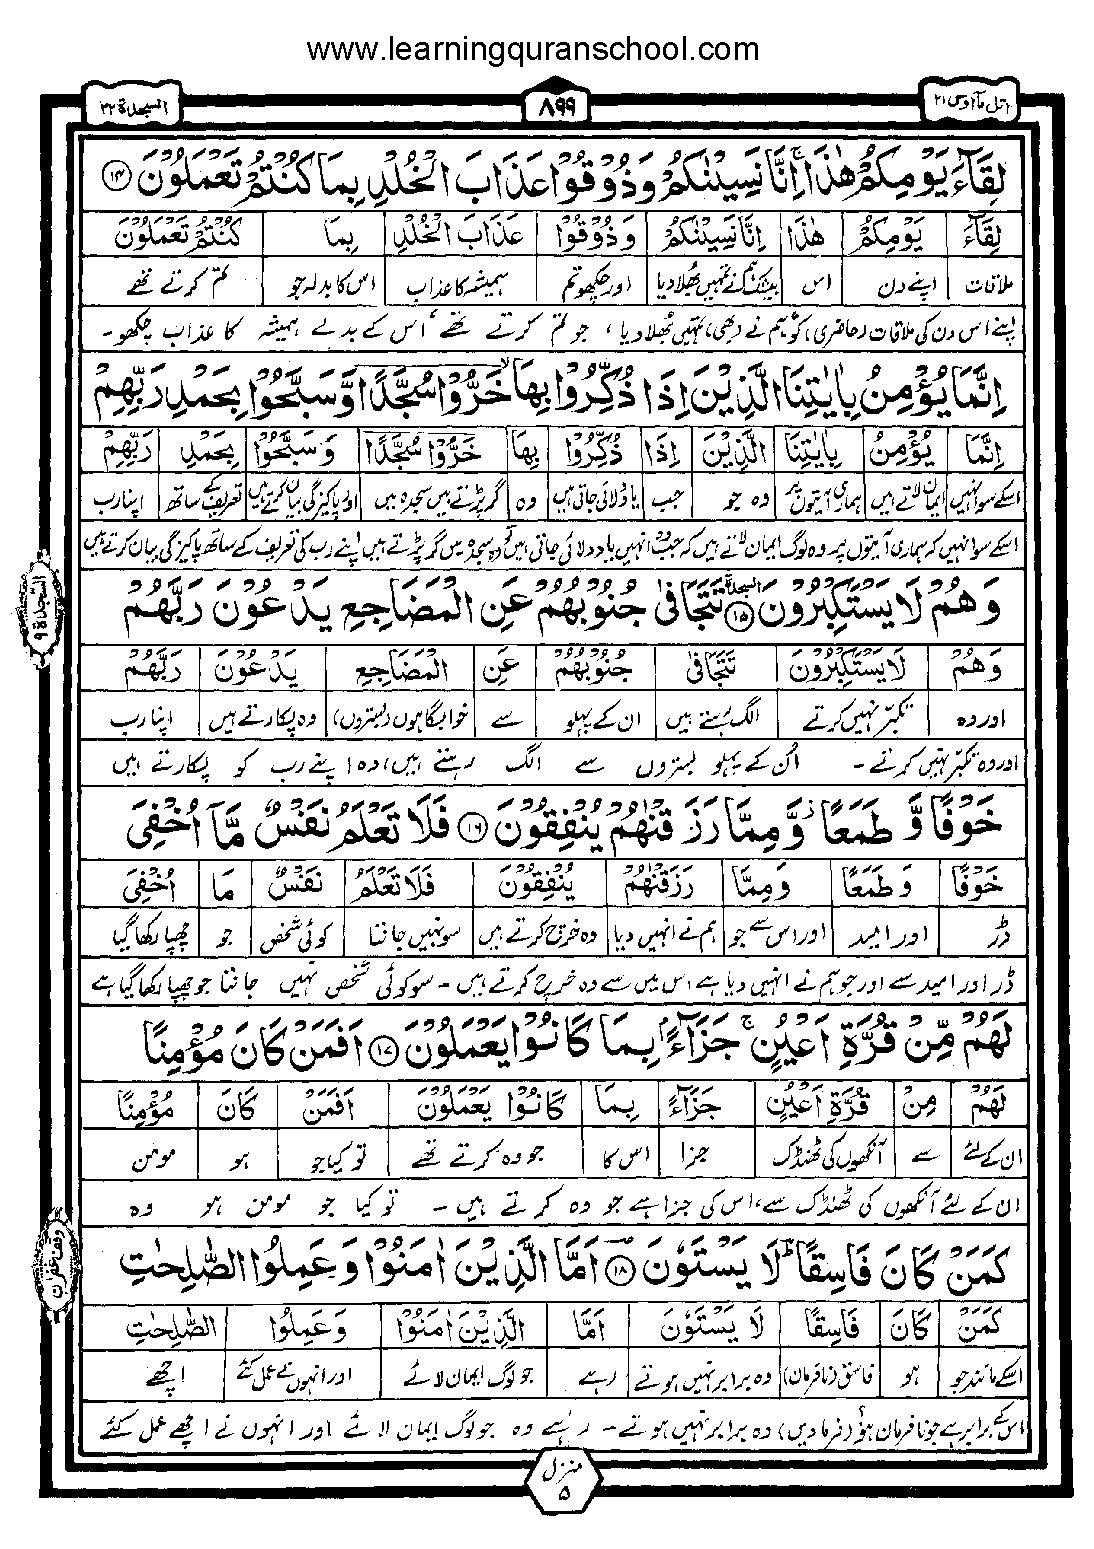 www.learningquranschool.com
اتل مآ اوحی ۲۱
۸۹۹
السجدة ۳۲
لِقَآءَ يَوْمِكُمْ هٰذَا ۚ اِنَّا نَسِيْنٰكُمْ وَذُوْقُوْا عَذَابَ الْخُلْدِ بِمَا كُنْتُمْ تَعْمَلُوْنَ ۝۱۴
لِقَآءَ يَوْمِكُمْ هٰذَا اِنَّا نَسِيْنٰكُمْ وَذُوْقُوْا عَذَابَ الْخُلْدِ بِمَا كُنْتُمْ تَعْمَلُوْنَ
ملاقات اپنے دن اس بیشک ہم نے تمہیں بھلا دیا اور چکھو تم ہمیشہ کا عذاب اس کا بدلہ جو تم کرتے تھے
اپنے اس دن کی ملاقات (حاضری) کو، ہم نے (بھی) تمہیں بھلا دیا، جو تم کرتے تھے اس کے بدلے ہمیشہ کا عذاب چکھو۔
اِنَّمَا يُؤْمِنُ بِاٰيٰتِنَا الَّذِيْنَ اِذَا ذُكِّرُوْا بِهَا خَرُّوْا سُجَّدًا وَّسَبَّحُوْا بِحَمْدِ رَبِّهِمْ
اِنَّمَا يُؤْمِنُ بِاٰيٰتِنَا الَّذِيْنَ اِذَا ذُكِّرُوْا بِهَا خَرُّوْا سُجَّدًا وَسَبَّحُوْا بِحَمْدِ رَبِّهِمْ
اسکے سوا نہیں ایمان لاتے ہیں ہماری آیتوں پر وہ جو جب یاد دلائی جاتی ہیں وہ گر پڑتے ہیں سجدہ میں اور پاکیزگی بیان کرتے ہیں تعریف کے ساتھ اپنا رب
اسکے سوا نہیں کہ ہماری آیتوں پر وہ لوگ ایمان لاتے ہیں کہ جب وہ انہیں یاد دلائی جاتی ہیں تو وہ سجدہ میں گر پڑتے ہیں اپنے رب کی تعریف کے ساتھ پاکیزگی بیان کرتے ہیں
السجدة ۹
وَهُمْ لَا يَسْتَكْبِرُوْنَ ۝۱۵ السجدة تَتَجَافٰى جُنُوْبُهُمْ عَنِ الْمَضَاجِعِ يَدْعُوْنَ رَبَّهُمْ
وَهُمْ لَا يَسْتَكْبِرُوْنَ تَتَجَافٰى جُنُوْبُهُمْ عَنِ الْمَضَاجِعِ يَدْعُوْنَ رَبَّهُمْ
اور وہ تکبر نہیں کرتے الگ رہتے ہیں ان کے پہلو سے خوابگاہوں (بستروں) وہ پکارتے ہیں اپنا رب
اور وہ تکبر نہیں کرتے۔ اُن کے پہلو بستروں سے الگ رہتے ہیں، وہ اپنے رب کو پکارتے ہیں
خَوْفًا وَّ طَمَعًا ۫ وَّمِمَّا رَزَقْنٰهُمْ يُنْفِقُوْنَ ۝۱۶ فَلَا تَعْلَمُ نَفْسٌ مَّآ اُخْفِىَ
خَوْفًا وَ طَمَعًا وَمِمَّا رَزَقْنٰهُمْ يُنْفِقُوْنَ فَلَا تَعْلَمُ نَفْسٌ مَا اُخْفِىَ
ڈر اور امید اور اس سے جو ہم نے انہیں دیا وہ خرچ کرتے ہیں سو نہیں جانتا کوئی شخص جو چھپا رکھا گیا
ڈر اور امید سے اور جو ہم نے انہیں دیا ہے اس میں سے وہ خرچ کرتے ہیں۔ سو کوئی شخص نہیں جانتا جو چھپا رکھا گیا ہے
لَهُمْ مِّنْ قُرَّةِ اَعْيُنٍ ۚ جَزَآءًۢ بِمَا كَانُوْا يَعْمَلُوْنَ ۝۱۷ اَفَمَنْ كَانَ مُؤْمِنًا
لَهُمْ مِنْ قُرَّةِ اَعْيُنٍ جَزَآءً بِمَا كَانُوْا يَعْمَلُوْنَ اَفَمَنْ كَانَ مُؤْمِنًا
ان کے لئے سے آنکھوں کی ٹھنڈک جزا اس کا جو وہ کرتے تھے تو کیا جو ہو مومن
ان کے لئے آنکھوں کی ٹھنڈک سے، اس کی جزا ہے جو وہ کرتے ہیں۔ تو کیا جو مومن ہو وہ
وقف غفران
كَمَنْ كَانَ فَاسِقًا ؕ لَا يَسْتَوٗنَ ۝۱۸ اَمَّا الَّذِيْنَ اٰمَنُوْا وَعَمِلُوا الصّٰلِحٰتِ
كَمَنْ كَانَ فَاسِقًا لَا يَسْتَوٗنَ اَمَّا الَّذِيْنَ اٰمَنُوْا وَعَمِلُوا الصّٰلِحٰتِ
اسکے مانند جو ہو فاسق (نافرمان) وہ برابر نہیں ہوتے رہے جو لوگ ایمان لائے اور انہوں نے عمل کئے اچھے
اس کے برابر ہے جو نافرمان ہو؟ (فرما دیں) وہ برابر نہیں ہوتے۔ رہے وہ جو لوگ ایمان لائے اور انہوں نے اچھے عمل کئے
منزل ۵